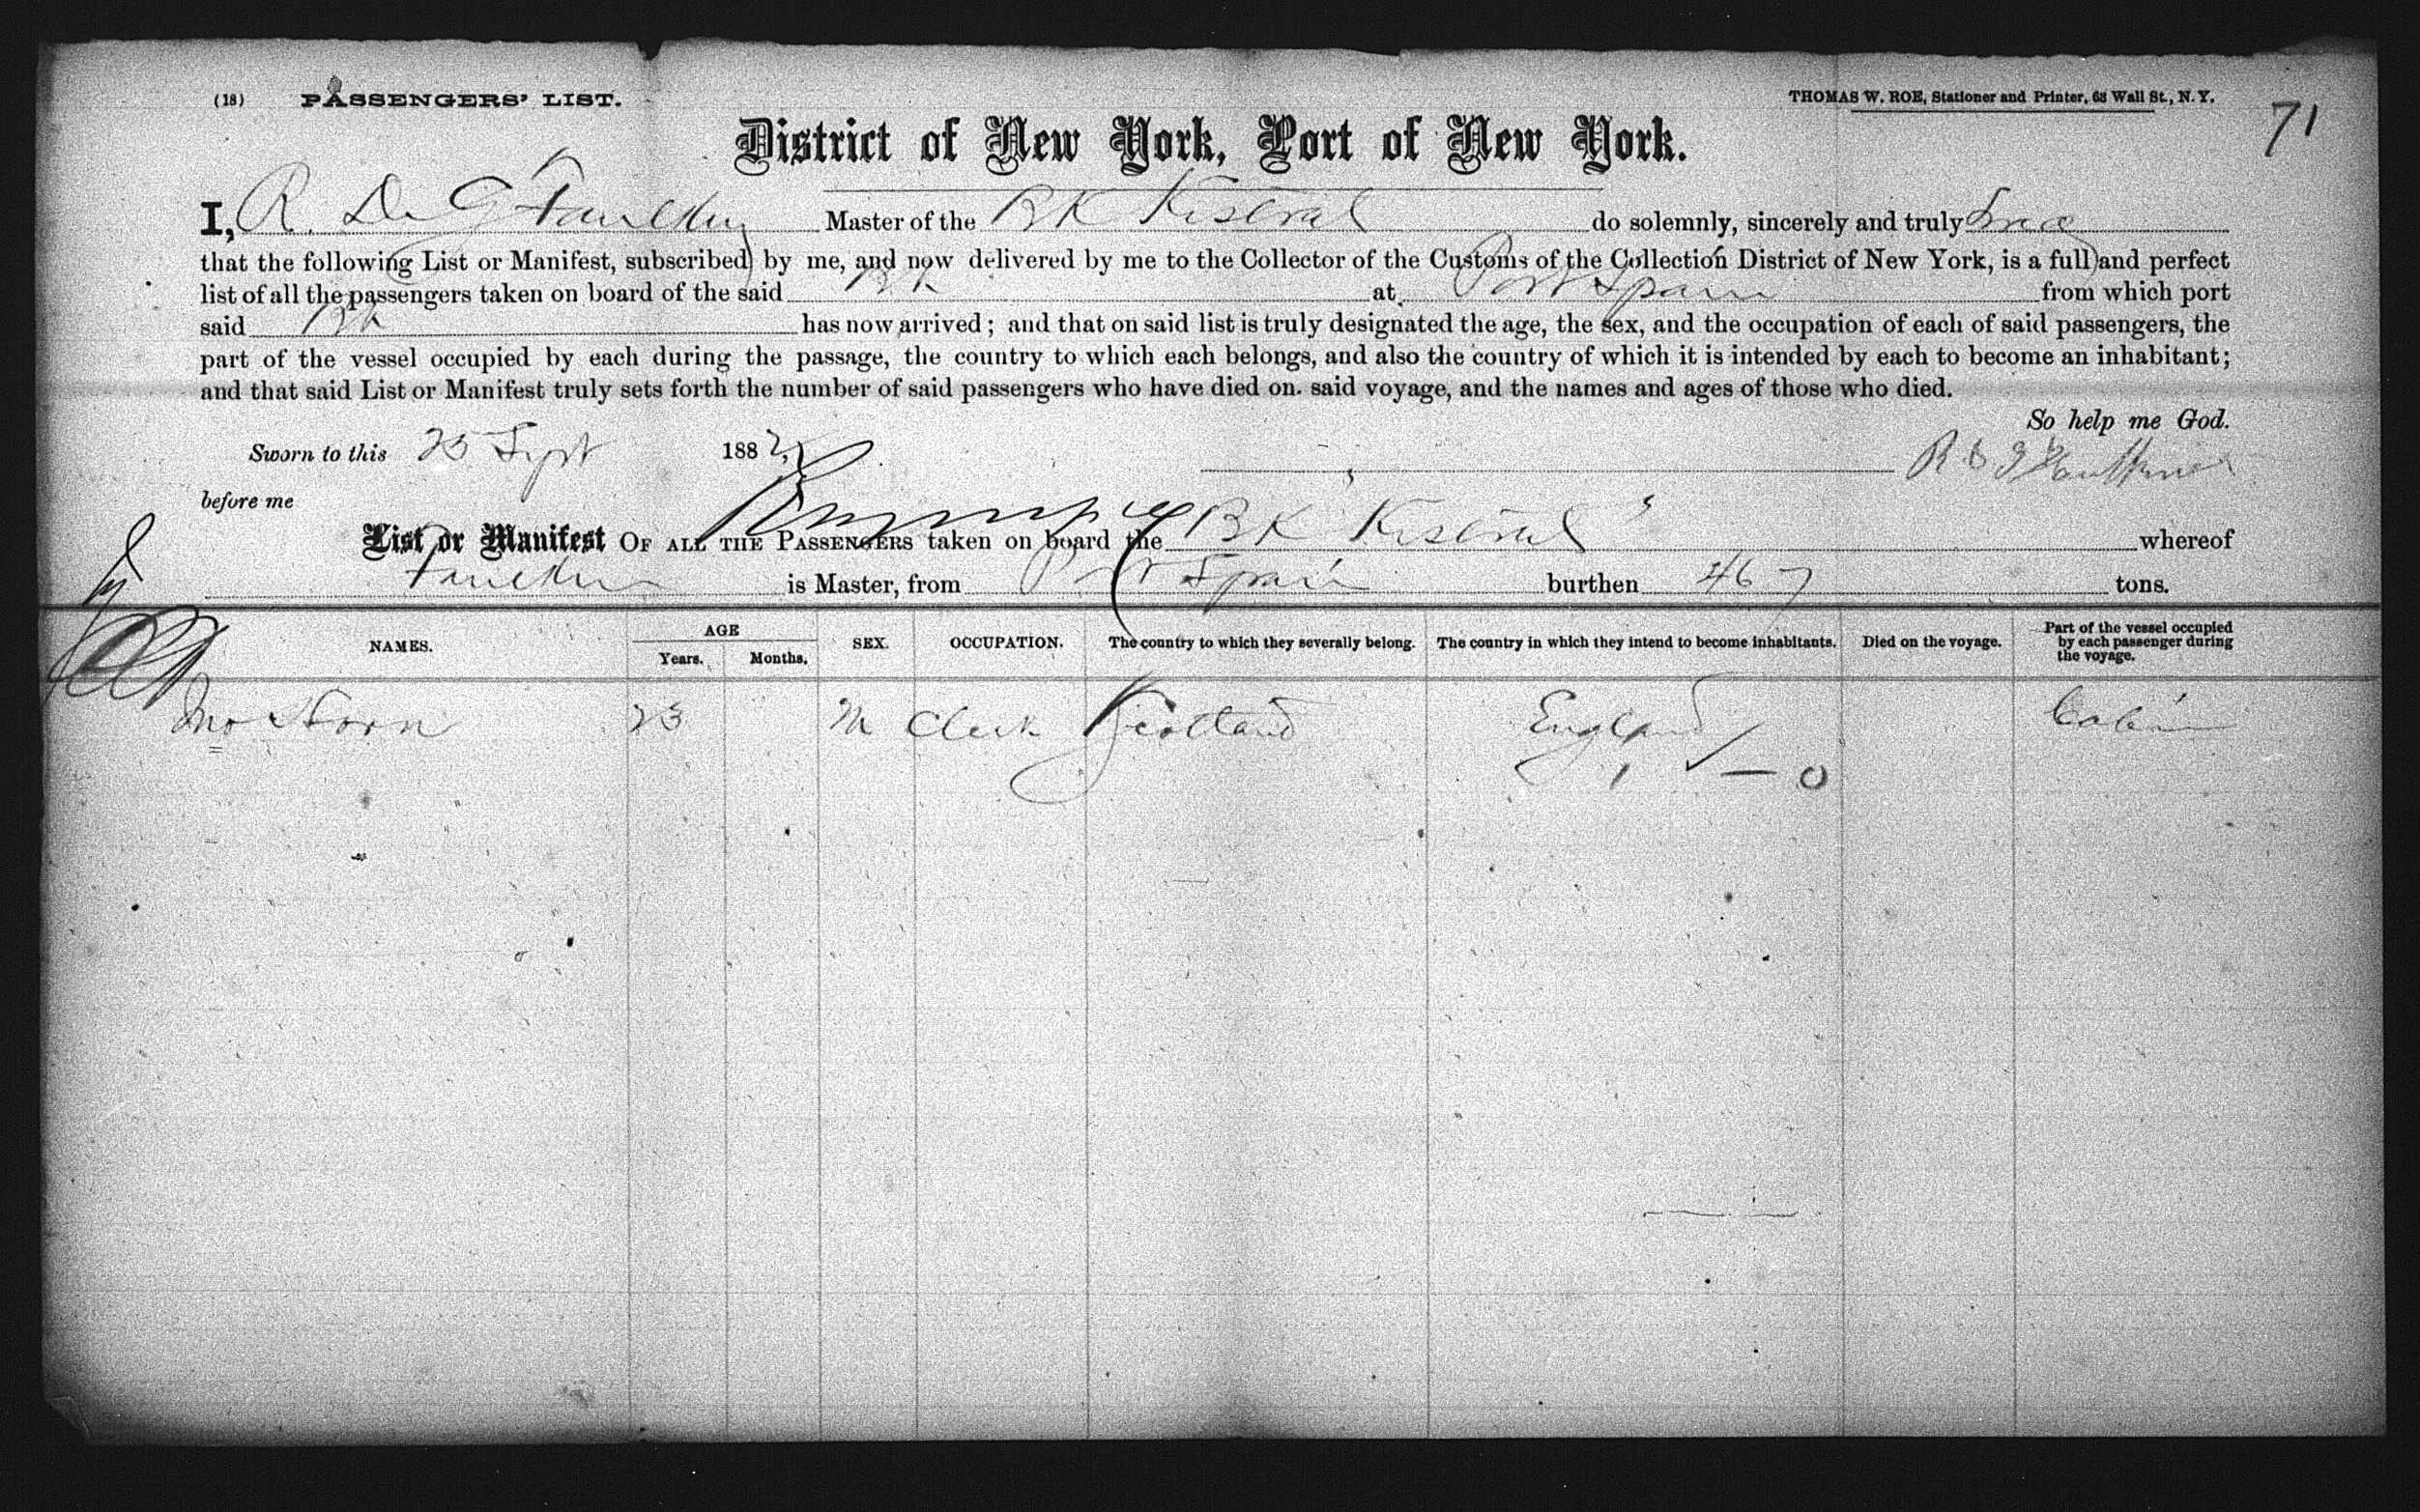 (18) PASSENGERS' LIST.
THOMAS W. ROE, Stationer and Printer, 63 Wall St., N. Y.
71
District of New York, Port of New York.
I, R. De G Faulkn Master of the BK Kestrel do solemnly, sincerely and truly
that the following List or Manifest, subscribed by me, and now delivered by me to the Collector of the Customs of the Collection District of New York, is a full and perfect
list of all the passengers taken on board of the said Bk at Port Spain from which port
said Bk has now arrived; and that on said list is truly designated the age, the sex, and the occupation of each of said passengers, the
part of the vessel occupied by each during the passage, the country to which each belongs, and also the country of which it is intended by each to become an inhabitant;
and that said List or Manifest truly sets forth the number of said passengers who have died on said voyage, and the names and ages of those who died.
So help me God.
Sworn to this 25 Sept 1882,
before me
List or Manifest OF ALL THE PASSENGERS taken on board the BK "Kestrel" whereof
is Master, from Port Spain burthen 467 tons.
NAMES. AGE Years. Months. SEX. OCCUPATION. The country to which they severally belong. The country in which they intend to become inhabitants. Died on the voyage. Part of the vessel occupied by each passenger during the voyage.
Jno Horn 23 M Clerk Scotland England Cabin
1 — 0